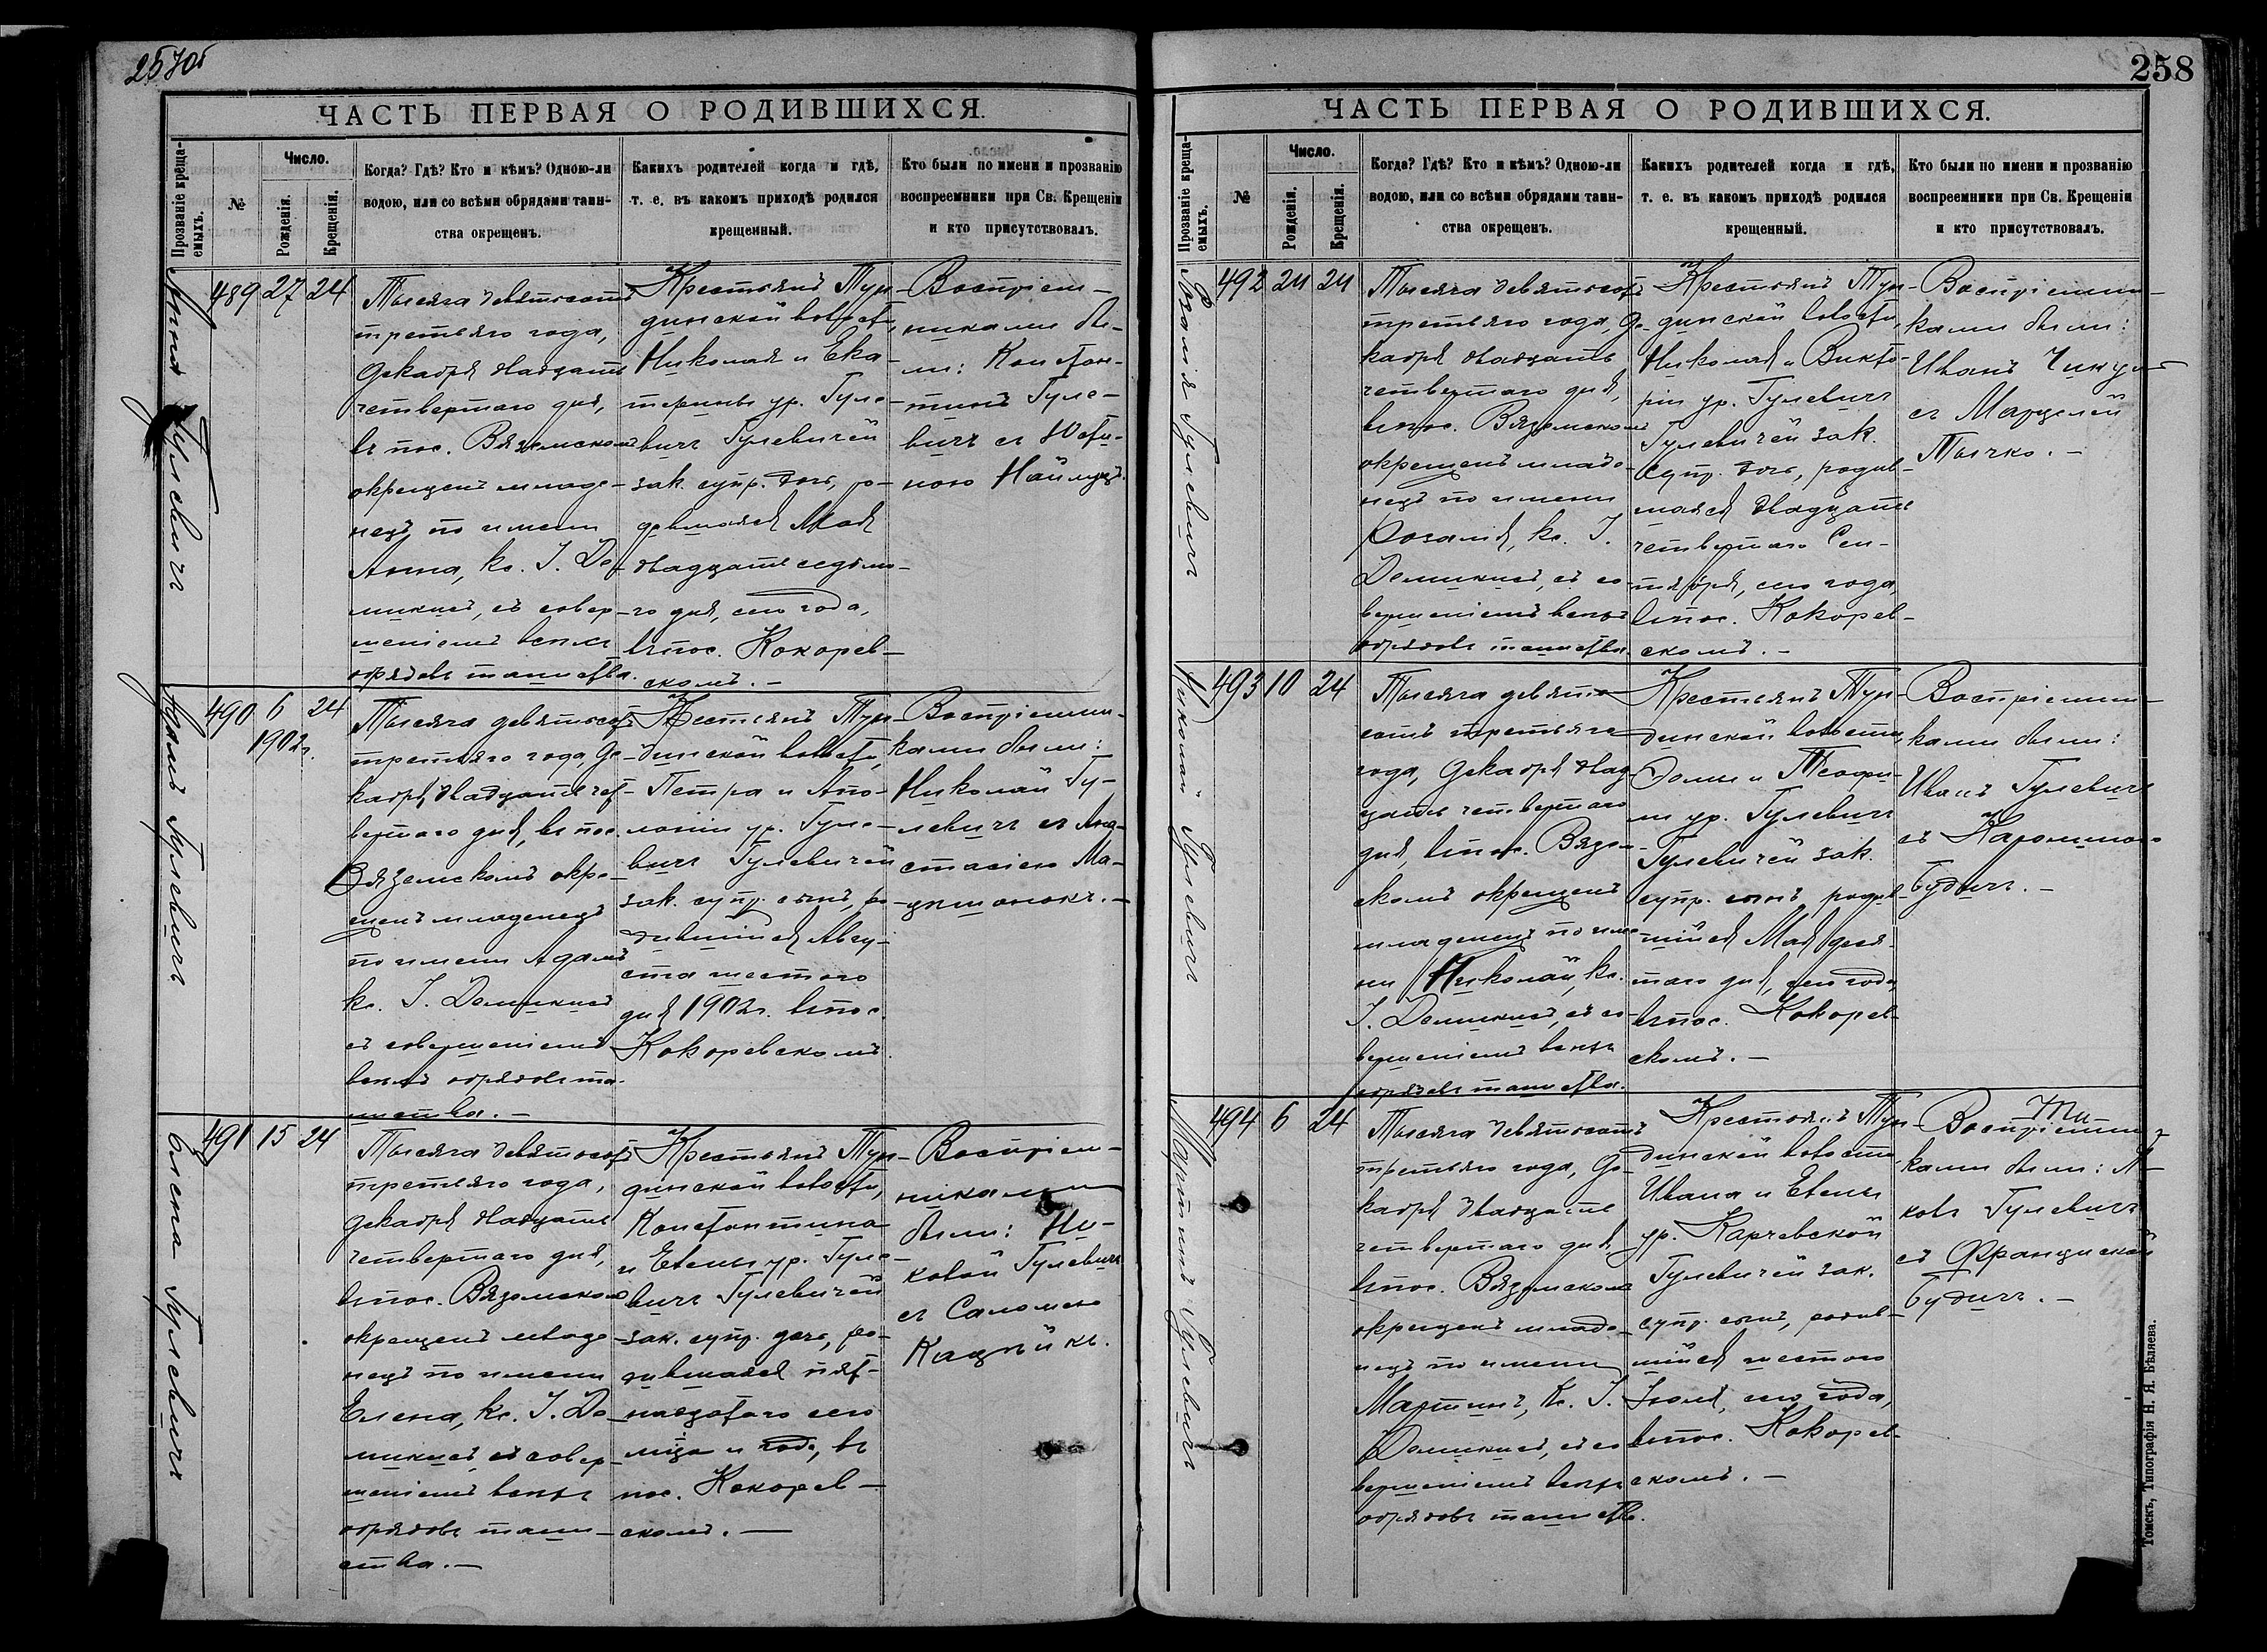 257об
ЧАСТЬ ПЕРВАЯ О РОДИВШИХСЯ.
Прозваніе креща-
емыхъ.
№
Число.
Рожденія.
Крещенія.
Когда? Гдѣ? Кто и кѣмъ? Одною-ли
водою, или со всѣми обрядами таин-
ства окрещенъ.
Какихъ родителей когда и гдѣ,
т. е. въ какомъ приходѣ родился
крещенный.
Кто были по имени и прозванію
воспреемники при Св. Крещеніи
и кто присутствовалъ.
Анна Гулевичъ
489 27 24
Тысяча девятьсотъ
третьяго года,
Декабря двадцать
четвертаго дня,
въ пос. Вяземскомъ
окрещенъ младе-
нецъ по имени
Анна, кс. І. Де-
микисъ, съ совер-
шеніемъ всѣхъ
обрядовъ таинства.
Крестьянъ Тур-
динской волости,
Николая и Ека-
терины ур. Гуле-
вичъ Гулевичей
зак. супр. дочь, ро-
дившаяся Мая
двадцать седьма-
го дня, сего года,
въ пос. Кокорев-
скомъ. —
Воспріем-
никами бы-
ли: Констан-
тинъ Гуле-
вичъ съ Юсти-
ною
Адамъ Гулевичъ
490 6 24
1902г.
Тысяча девятьсотъ
третьяго года, Де-
кабря, двадцать чет-
вертаго дня, въ пос.
Вяземскомъ окре-
щенъ младенецъ
по имени Адамъ
кс. І. Демикисъ
съ совершеніемъ
всѣхъ обрядовъ та-
инства. —
Крестьянъ Тур-
динской волости,
Петра и Апо-
лоніи ур. Гуле-
вичъ Гулевичей
зак. супр. сынъ, ро-
дившійся Авгу-
ста шестого
дня 1902г. въ пос.
Кокоревскомъ.
Воспріемни-
ками были:
Николай Гу-
левичъ съ Ана-
стасіею
Елена Гулевичъ
491 15 24
Тысяча девятьсотъ
третьяго года,
Декабря двадцать
четвертаго дня,
въ пос. Вяземскомъ
окрещенъ младе-
нецъ по имени
Елена, кс. І. Де-
микисъ, съ совер-
шеніемъ всѣхъ
обрядовъ таин-
ства. —
Крестьянъ Тур-
динской волости,
Константина
и Елены ур. Гуле-
вичъ Гулевичей
зак. супр. дочь, ро-
дившаяся пят-
надцатого сего
мѣца и года, въ
пос. Кокорев-
скомъ. —
Воспріем-
никами
были: Ни-
колай Гулевичъ
съ Саломею
258
ЧАСТЬ ПЕРВАЯ О РОДИВШИХСЯ.
Прозваніе креща-
емыхъ.
№
Число.
Рожденія.
Крещенія.
Когда? Гдѣ? Кто и кѣмъ? Одною-ли
водою, или со всѣми обрядами таин-
ства окрещенъ.
Какихъ родителей когда и гдѣ,
т. е. въ какомъ приходѣ родился
крещенный.
Кто были по имени и прозванію
воспреемники при Св. Крещеніи
и кто присутствовалъ.
Розалія Гулевичъ
492 24 24
Тысяча девятьсотъ
третьяго года, Де-
кабря двадцать
четвертаго дня,
въ пос. Вяземскомъ
окрещенъ младе-
нецъ по имени
Розалія, кс. І.
Демикисъ, съ со-
вершеніемъ всѣхъ
обрядовъ таинства.
Крестьянъ Тур-
динской волости,
Николая и Викто-
ріи ур. Гулевичъ
Гулевичей зак.
супр. дочь, родив-
шаяся двадцать
четвертаго Сен-
тября, сего года,
въ пос. Кокорев-
скомъ. —
Воспріемни-
ками были:
Иванъ
съ
Николай Гулевичъ
493 10 24
Тысяча девять-
сотъ третьяго
года, Декабря двад-
цать четвертаго
дня, въ пос. Вязем-
скомъ окрещенъ
младенецъ по име-
ни Николай, кс.
І. Демикисъ, съ со-
вершеніемъ всѣхъ
обрядовъ таинства.
Крестьянъ Тур-
динской волости,
Фомы и Теофи-
ли ур. Гулевичъ
Гулевичей зак.
супр. сынъ, родив-
шійся Мая деся-
таго дня, сего года,
въ пос. Кокорев-
скомъ. —
Воспріемни-
ками были:
Иванъ Гулевичъ
съ Каролиною
Будичъ. —
Мартинъ Гулевичъ
494 6 24
Тысяча девятьсотъ
третьяго года, Де-
кабря двадцать
четвертаго дня,
въ пос. Вяземскомъ
окрещенъ младе-
нецъ по имени
Мартинъ, кс. І.
Демикисъ, съ со-
вершеніемъ всѣхъ
обрядовъ таинства.
Крестьянъ Тур-
динской волости
Ивана и Елены
ур. Карчевской
Гулевичей зак.
супр. сынъ, родив-
шійся шестого
Іюля, сего года,
въ пос. Кокорев-
скомъ. —
Воспріемни-
ками были:
Гулевичъ
съ Францискою
Будичъ. —
Томскъ, Типографія Н. Я. Бѣляева.